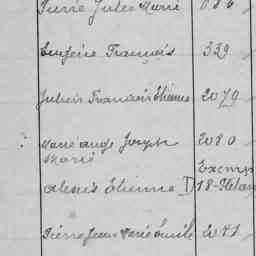 Pierre Jules Marie 086
Eugène François 329
Julien François Etienne 2079
Marie ange Joseph 2080
Marie
Exemp
alexis Etienne 18-
Pierre Jean Marie Emile 2081